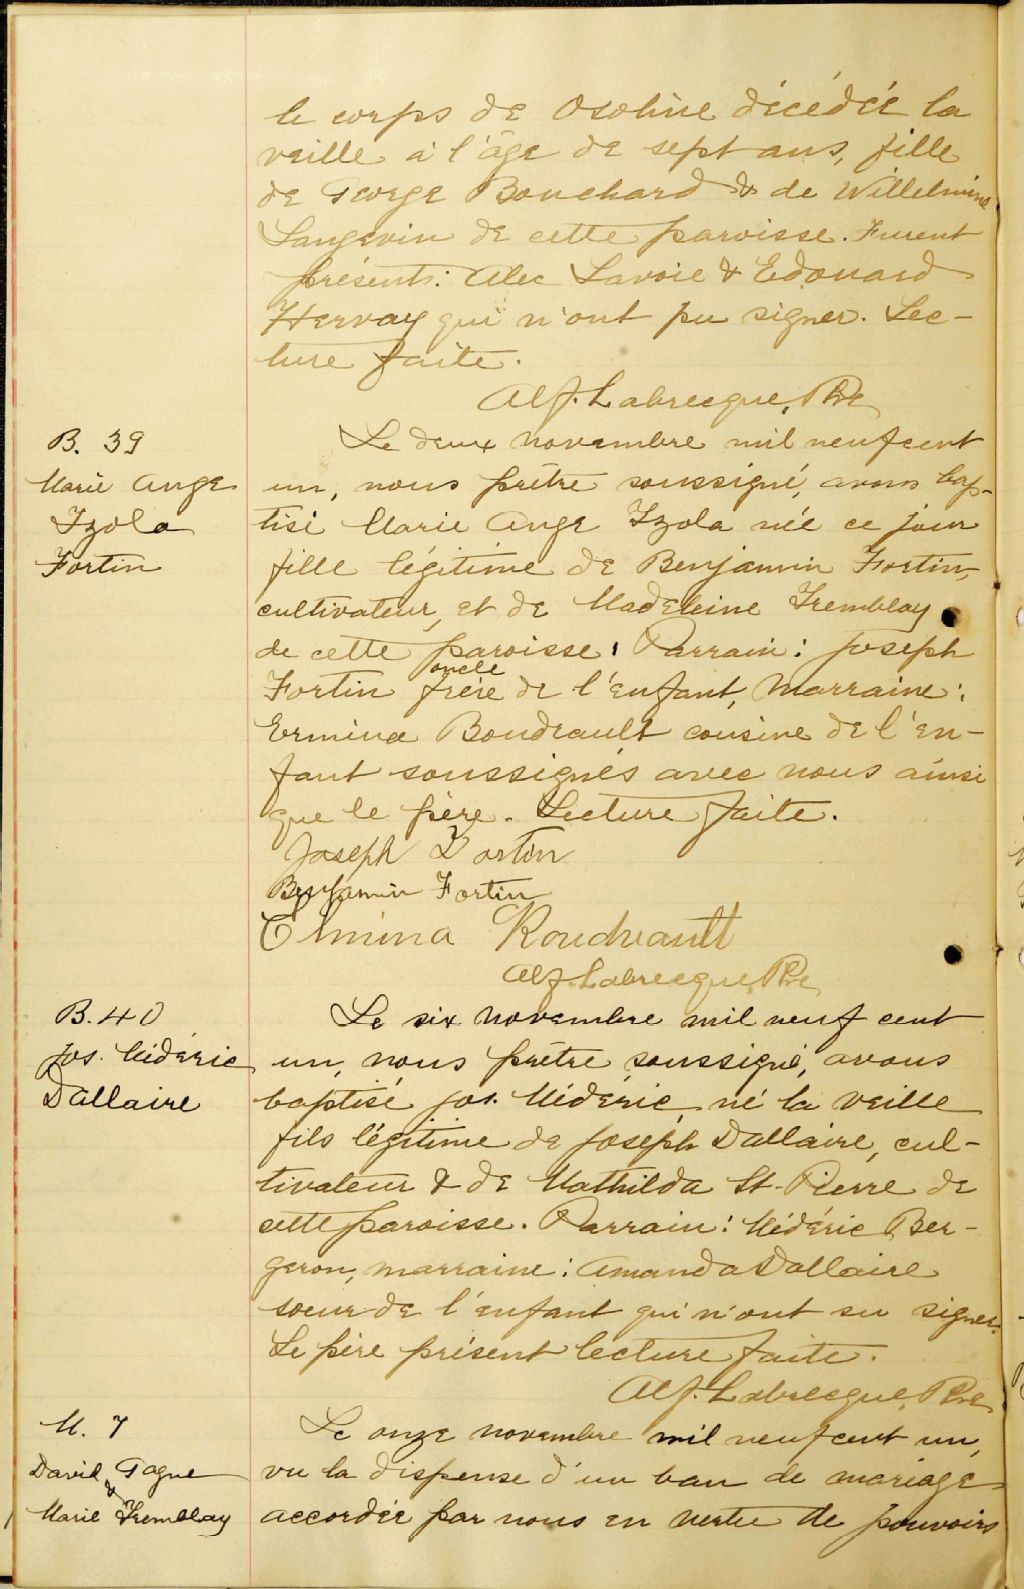 le corps de Osoline décédée la
veille à l'âge de sept ans, fille
de George Bouchard & de Willelmine
Langevin de cette paroisse. Furent
présents: Alec Lavoie & Edouard
Hervay qui n'ont pu signer. Lec-
ture faite.
Alf. Labrecque, Ptre
B. 39
Marie Ange
Izola
Fortin
Le deux novembre mil neuf cent
un, nous prêtre soussigné, avons bap-
tisé Marie Ange Izola née ce jour
fille légitime de Benjamin Fortin,
cultivateur, et de Madeleine Tremblay
de cette paroisse. Parrain: Joseph
oncle
Fortin frère de l'enfant, Marraine:
Ermina Boudreault cousine de l'en-
fant soussignés avec nous ainsi
que le père. Lecture faite.
Joseph Fortin
Benjamin Fortin
Elmina Boudreault
Alf. Labrecque, Ptre
B. 40
Jos. Médéric
Dallaire
Le six novembre mil neuf cent
un, nous prêtre soussigné, avons
baptisé Jos. Médéric, né la veille
fils légitime de Joseph Dallaire, cul-
tivateur & de Mathilda St-Pierre de
cette paroisse. Parrain: Médéric Ber-
geron, marraine: Amanda Dallaire
soeur de l'enfant qui n'ont su signer.
Le père présent lecture faite.
Alf. Labrecque, Ptre
M. 7
David Gagne
&
Marie Tremblay
Le onze novembre mil neuf cent un,
vu la dispense d'un ban de mariage
accordée par nous en vertu de pouvoirs